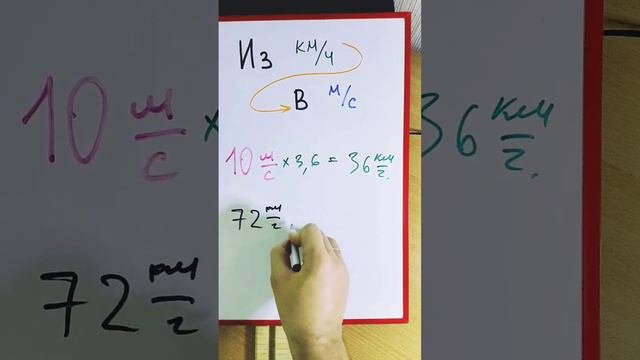 Из км/ч
в м/с
10 м/с × 3,6 = 36 км/ч.
72 км/ч